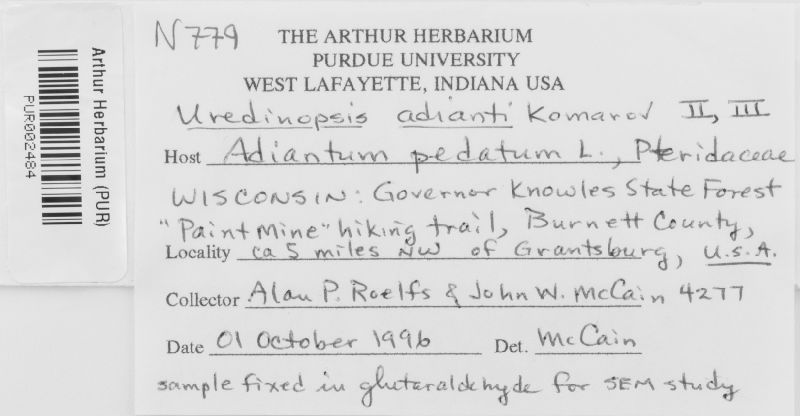 Arthur Herbarium (PUR)
PUR002484
N779
THE ARTHUR HERBARIUM
PURDUE UNIVERSITY
WEST LAFAYETTE, INDIANA USA
Uredinopsis adianti Komarov II, III
Host Adiantum pedatum L., Pteridaceae
WISCONSIN: Governor Knowles State Forest
"Paint Mine" hiking trail, Burnett County,
Locality ca 5 miles NW of Grantsburg, U.S.A.
Collector Alan P. Roelfs & John W. McCain 4277
Date 01 October 1996 Det. McCain
sample fixed in glutaraldehyde for SEM study